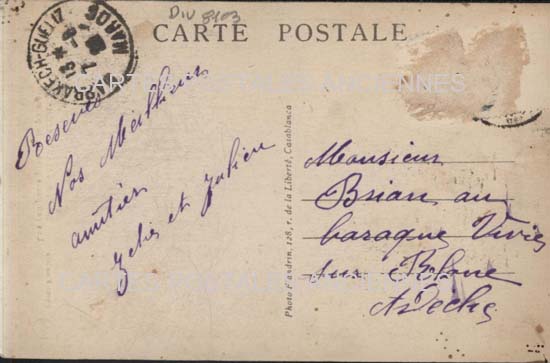 Div 8403
CARTE POSTALE
MARRAKECH-GUELIZ
MAROC
CARTES POSTALES ANCIENNES
Nos Meilleures
amitiés
et Julien
Photo Flandrin, 128, r. de la Liberté, Casablanca
Monsieur
Brian au
baraque Vivie
sur Blone
Ardeche
CARTES POSTALES ANCIENNES